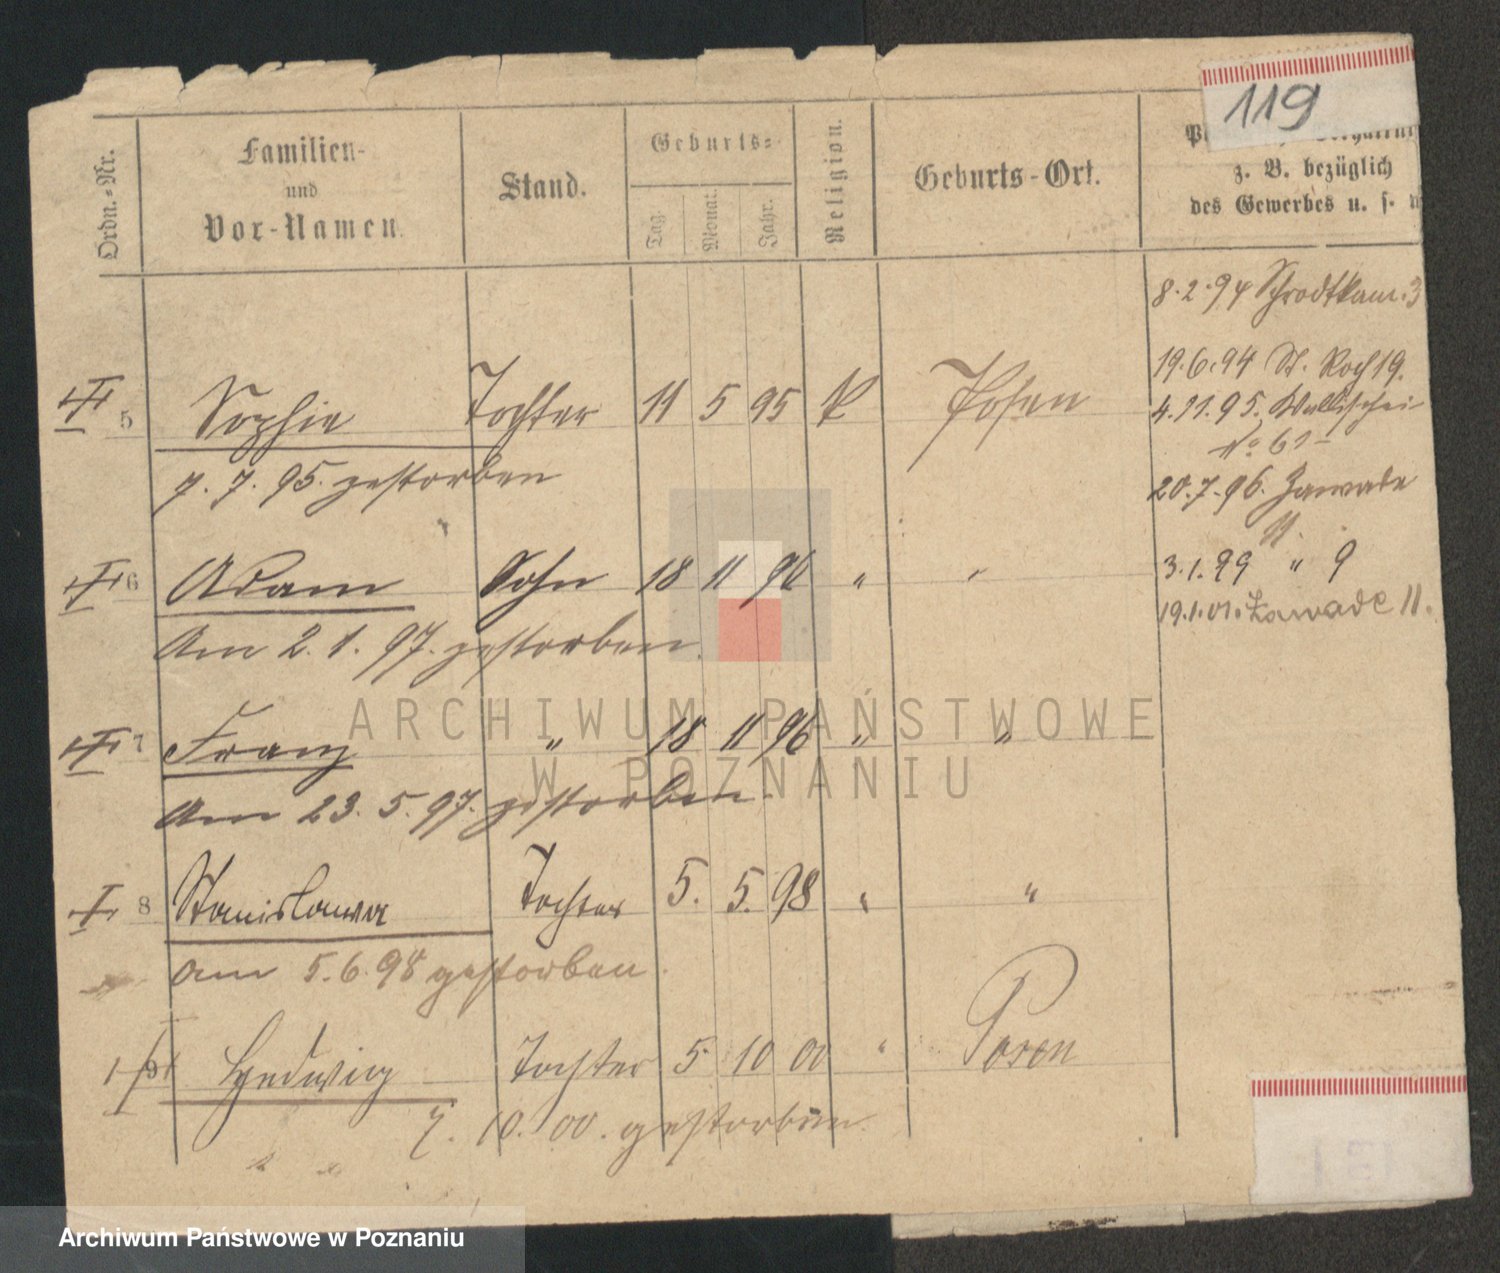 119
Ordn.-Nr.
Familien-
und
Vor-Namen.
Stand.
Geburts-
Tag.
Monat.
Jahr.
Religion.
Geburts-Ort.
z. B. bezüglich
des Gewerbes u. s.
8.2.94 Schrodtkam. 3
19.6.94 St. Roch 19.
5 Sophie Tochter 11 5 95 k Posen
4.11.95. Wallischei-
No 61
7. 7. 95. gestorben
20.7.96. Zawade
11.
6 Adam Sohn 18 11 96 " "
3.1.99 " 9
19.1.01. Zawade 11.
Am 2. 1. 97. gestorben.
7 Franz " 18 11 96 " "
Am 23. 5. 97. gestorben.
8 Stanislawa Tochter 5. 5. 98 " "
am 5.6.98 gestorben.
9 Hedwig Tochter 5 10 00 " Posen
7. 10. 00. gestorben.
ARCHIWUM PAŃSTWOWE
W POZNANIU
Archiwum Państwowe w Poznaniu